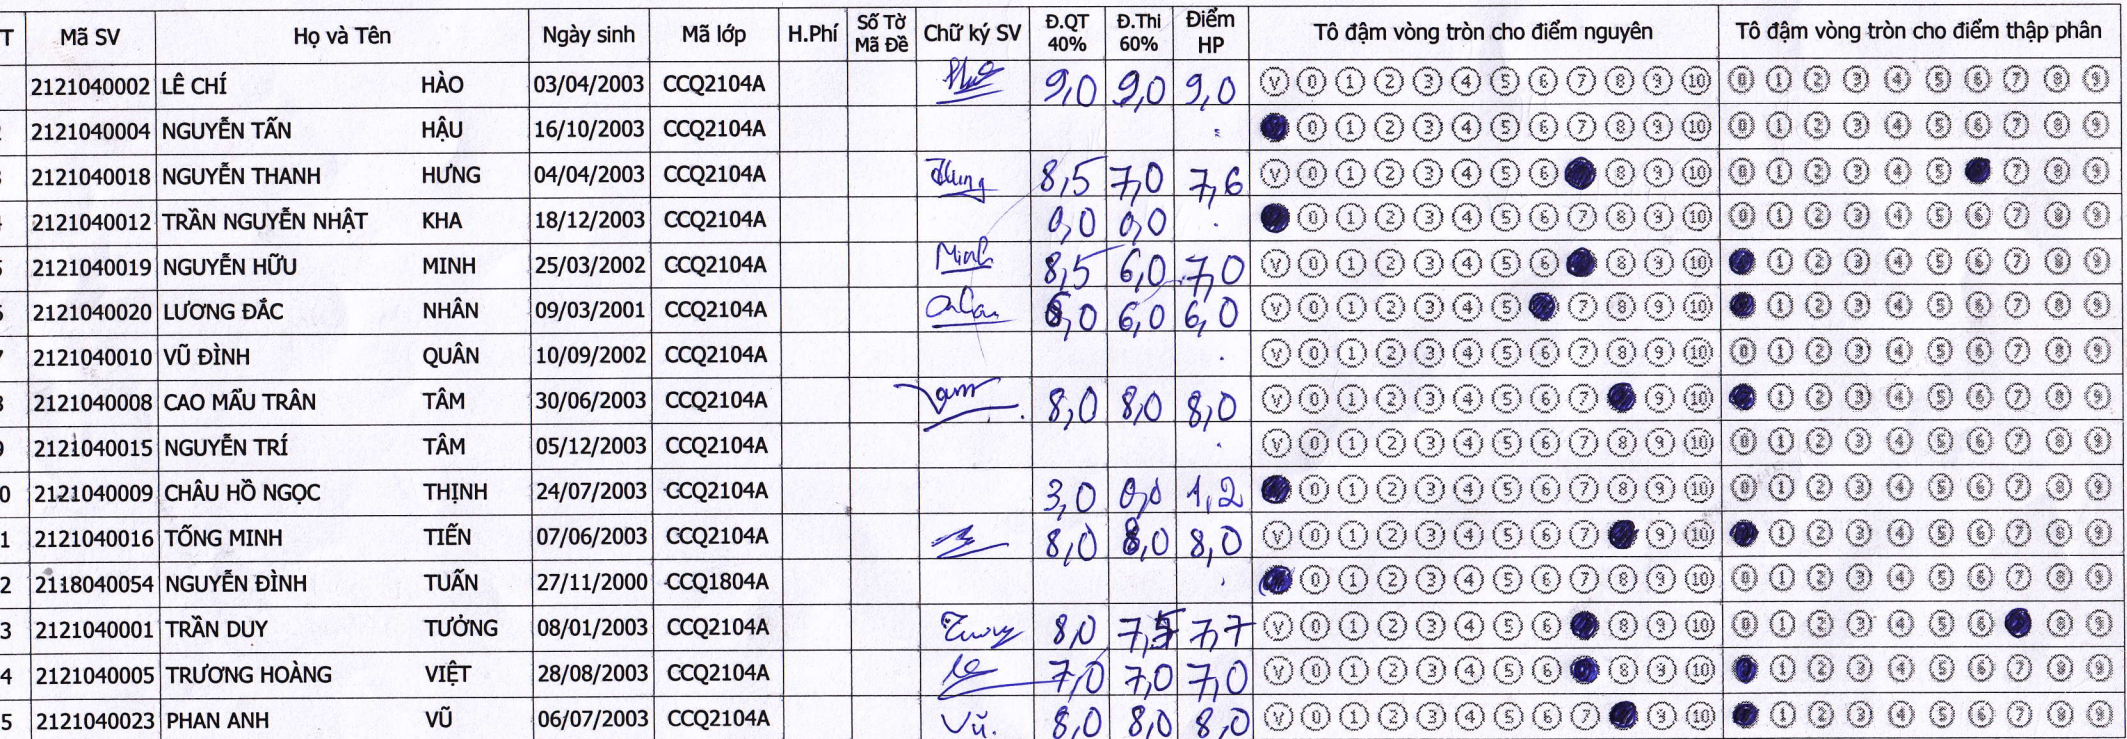 T Mã SV Họ và Tên Ngày sinh Mã lớp H.Phí Số Tờ Mã Đề Chữ ký SV Đ.QT 40% Đ.Thi 60% Điểm HP Tô đậm vòng tròn cho điểm nguyên Tô đậm vòng tròn cho điểm thập phân
2121040002 LÊ CHÍ HÀO 03/04/2003 CCQ2104A 9,0 9,0 9,0 V 0 1 2 3 4 5 6 7 8 9 10 0 1 2 3 4 5 6 7 8 9
2121040004 NGUYỄN TẤN HẬU 16/10/2003 CCQ2104A 0 1 2 3 4 5 6 7 8 9 10 0 1 2 3 4 5 6 7 8 9
2121040018 NGUYỄN THANH HƯNG 04/04/2003 CCQ2104A Hung 8,5 7,0 7,6 V 0 1 2 3 4 5 6 8 9 10 0 1 2 3 4 5 7 8 9
2121040012 TRẦN NGUYỄN NHẬT KHA 18/12/2003 CCQ2104A 0,0 0,0 0 1 2 3 4 5 6 7 8 9 10 0 1 2 3 4 5 6 7 8 9
2121040019 NGUYỄN HỮU MINH 25/03/2002 CCQ2104A Minh 8,5 6,0 7,0 V 0 1 2 3 4 5 6 8 9 10 1 2 3 4 5 6 7 8 9
2121040020 LƯƠNG ĐẮC NHÂN 09/03/2001 CCQ2104A 6,0 6,0 6,0 V 0 1 2 3 4 5 7 8 9 10 1 2 3 4 5 6 7 8 9
2121040010 VŨ ĐÌNH QUÂN 10/09/2002 CCQ2104A V 0 1 2 3 4 5 6 7 8 9 10 0 1 2 3 4 5 6 7 8 9
2121040008 CAO MẨU TRÂN TÂM 30/06/2003 CCQ2104A 8,0 8,0 8,0 V 0 1 2 3 4 5 6 7 9 10 1 2 3 4 5 6 7 8 9
2121040015 NGUYỄN TRÍ TÂM 05/12/2003 CCQ2104A V 0 1 2 3 4 5 6 7 8 9 10 0 1 2 3 4 5 6 7 8 9
0 2121040009 CHÂU HỒ NGỌC THỊNH 24/07/2003 CCQ2104A 3,0 0,0 1,2 0 1 2 3 4 5 6 7 8 9 10 0 1 2 3 4 5 6 7 8 9
1 2121040016 TỐNG MINH TIẾN 07/06/2003 CCQ2104A 8,0 8,0 8,0 V 0 1 2 3 4 5 6 7 9 10 1 2 3 4 5 6 7 8 9
2 2118040054 NGUYỄN ĐÌNH TUẤN 27/11/2000 CCQ1804A 0 1 2 3 4 5 6 7 8 9 10 0 1 2 3 4 5 6 7 8 9
3 2121040001 TRẦN DUY TƯỞNG 08/01/2003 CCQ2104A 8,0 7,5 7,7 V 0 1 2 3 4 5 6 8 9 10 0 1 2 3 4 5 6 8 9
4 2121040005 TRƯƠNG HOÀNG VIỆT 28/08/2003 CCQ2104A 7,0 7,0 7,0 V 0 1 2 3 4 5 6 8 9 10 1 2 3 4 5 6 7 8 9
5 2121040023 PHAN ANH VŨ 06/07/2003 CCQ2104A Vũ. 8,0 8,0 8,0 V 0 1 2 3 4 5 6 7 9 10 1 2 3 4 5 6 7 8 9